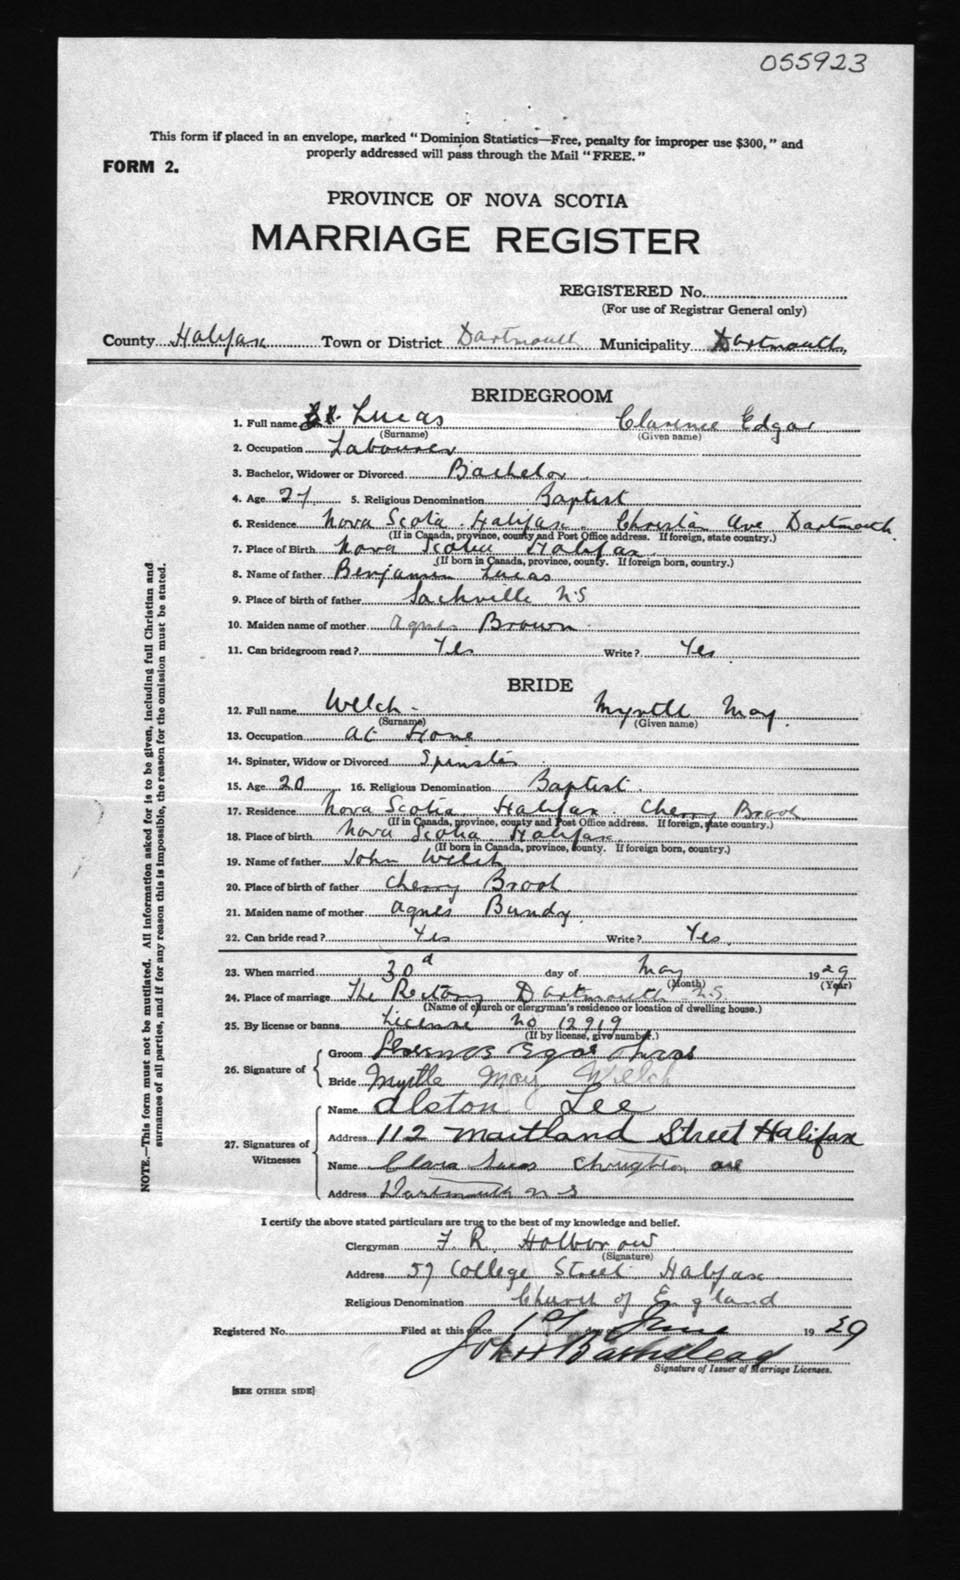 055923
This form if placed in an envelope, marked "Dominion Statistics—Free, penalty for improper use $300," and
properly addressed will pass through the Mail "FREE."
FORM 2.
PROVINCE OF NOVA SCOTIA
MARRIAGE REGISTER
REGISTERED No.
(For use of Registrar General only)
County Halifax Town or District Dartmouth Municipality Dartmouth
BRIDEGROOM
1. Full name Lucas Clarence Edgar
(Surname) (Given name)
2. Occupation Labourer
3. Bachelor, Widower or Divorced Bachelor
4. Age 27 5. Religious Denomination Baptist
6. Residence Nova Scotia Halifax Christian Ave Dartmouth
(If in Canada, province, county and Post Office address. If foreign, state country.)
7. Place of Birth Nova Scotia Halifax
(If born in Canada, province, county. If foreign born, country.)
8. Name of father Benjamin Lucas
9. Place of birth of father Sackville N.S
10. Maiden name of mother Agnes Brown
11. Can bridegroom read? Yes Write? Yes
BRIDE
12. Full name Welch Myrtle May.
(Surname) (Given name)
13. Occupation At Home
14. Spinster, Widow or Divorced Spinster
15. Age 20 16. Religious Denomination Baptist.
17. Residence Nova Scotia Halifax Cherry Brook
(If in Canada, province, county and Post Office address. If foreign, state country.)
18. Place of birth Nova Scotia Halifax
(If born in Canada, province, county. If foreign born, country.)
19. Name of father John Welch
20. Place of birth of father Cherry Brook
21. Maiden name of mother Agnes Bundy
22. Can bride read? Yes Write? Yes.
23. When married 30d day of May 1929
(Month) (Year)
24. Place of marriage The Rectory Dartmouth N.S.
(Name of church or clergyman's residence or location of dwelling house.)
25. By license or banns License No 12919
(If by license, give number.)
26. Signature of Groom
Bride Myrtle May Welch
27. Signatures of Witnesses
Name Alston Lee
Address 112 Maitland Street Halifax
Name Clara Lucas
Address Dartmouth N S
I certify the above stated particulars are true to the best of my knowledge and belief.
Clergyman F. R. Holbrow
(Signature)
Address 57 College Street Halifax
Religious Denomination Church of England
Registered No. Filed at this office 1st day of June 1929
Signature of Issuer of Marriage Licenses.
[SEE OTHER SIDE]
NOTE.—This form must not be mutilated. All information asked for is to be given, including full Christian and
surnames of all parties, and if for any reason this is impossible, the reason for the omission must be stated.